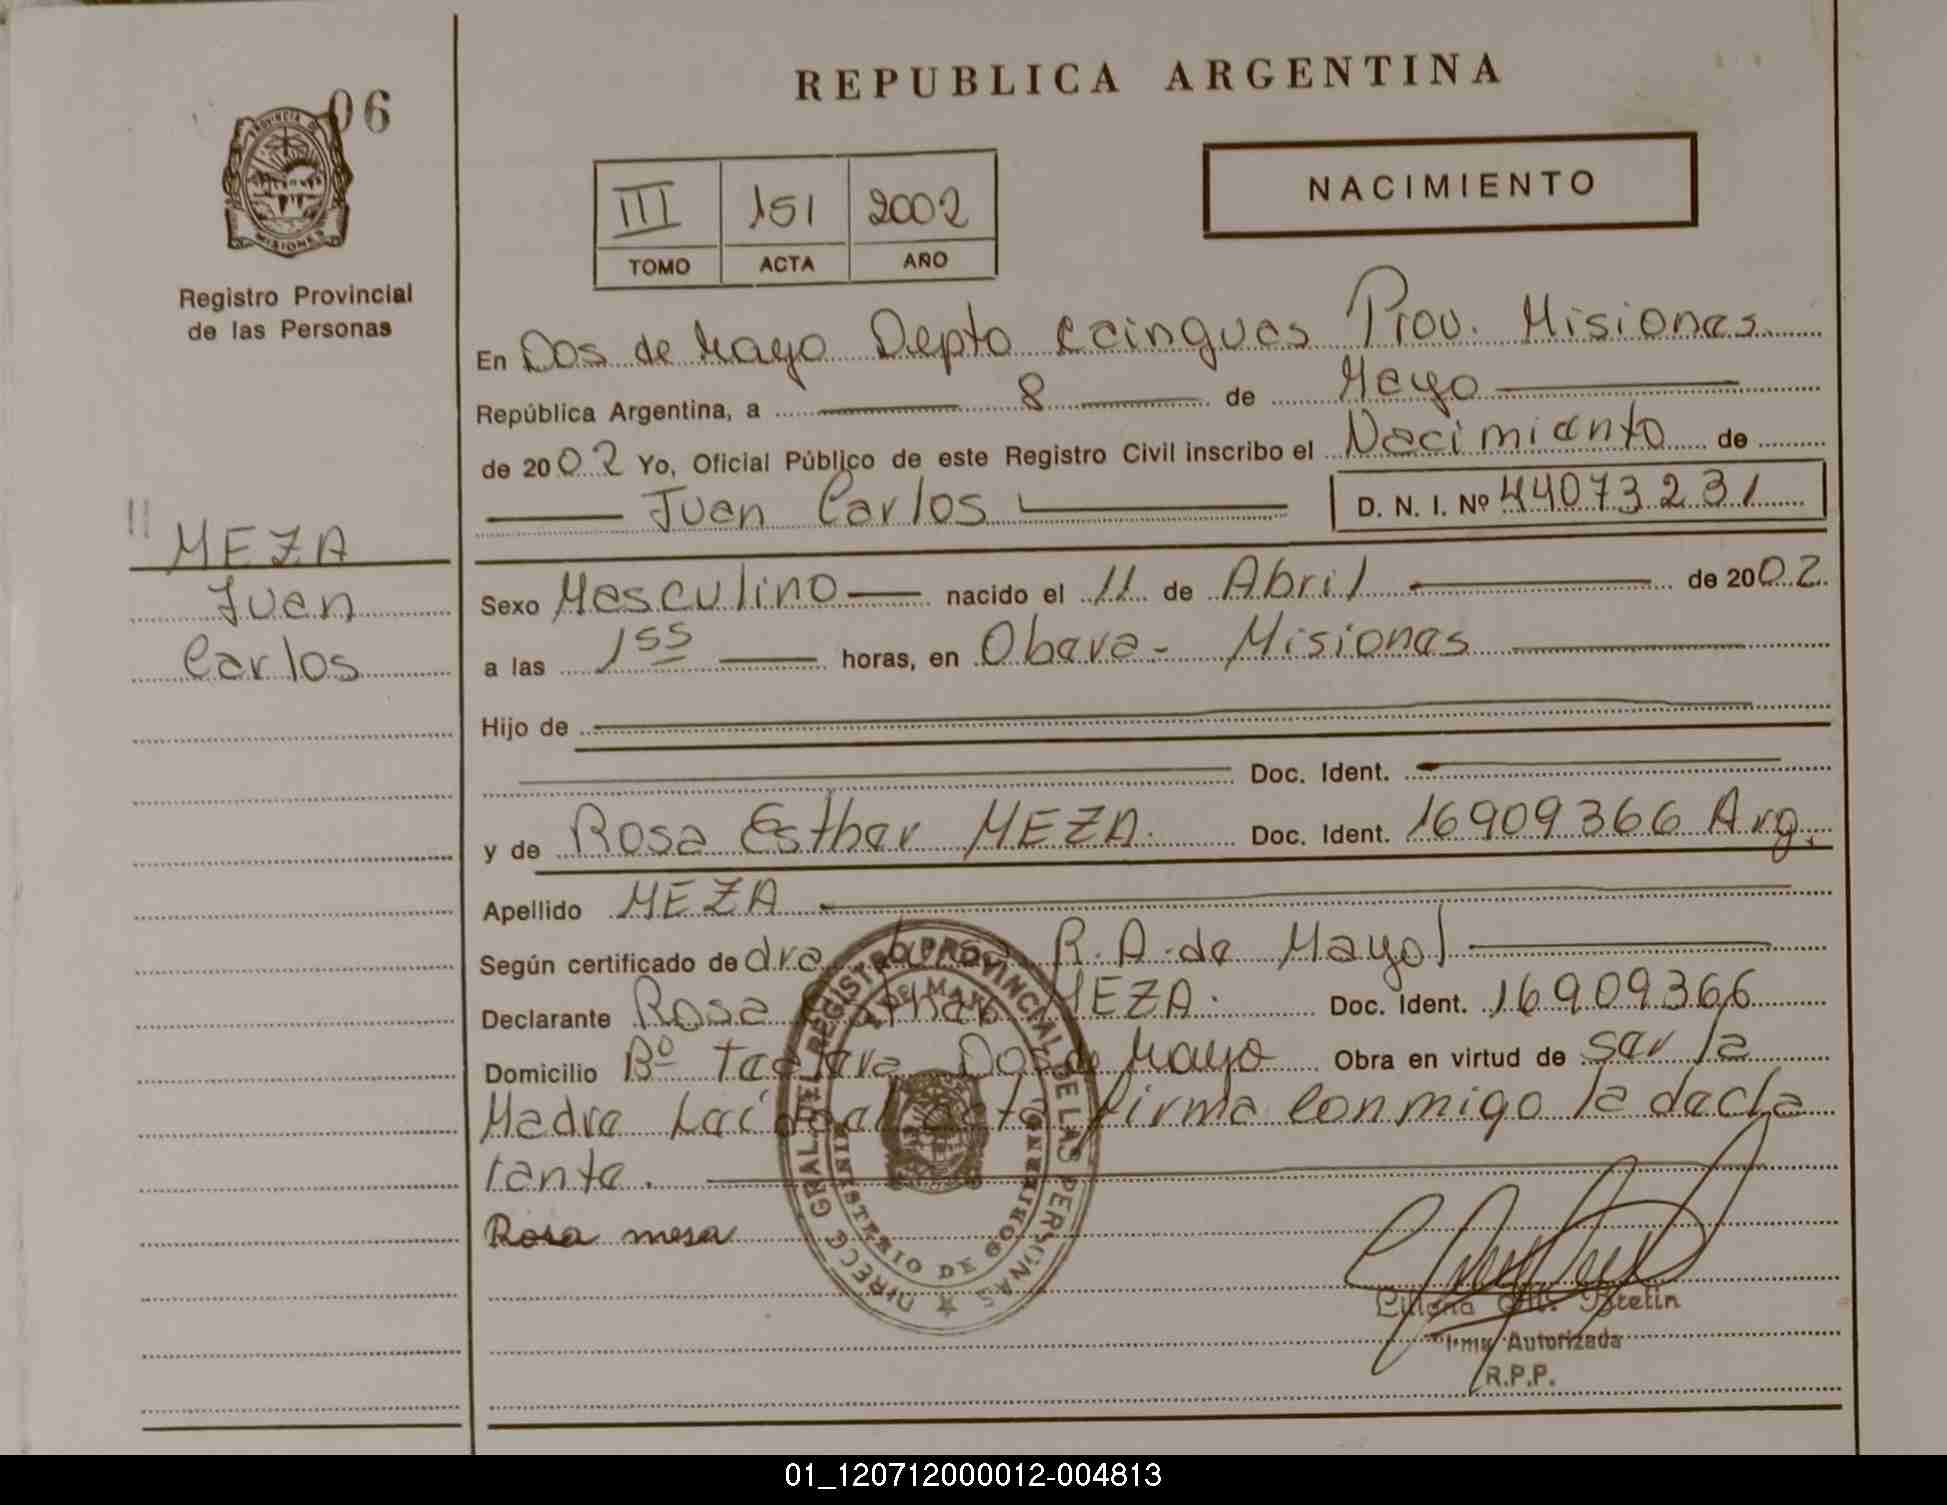 06
PROVINCIA DE
MISIONES
Registro Provincial
de las Personas
REPUBLICA ARGENTINA
III 151 2002
TOMO ACTA AÑO
NACIMIENTO
En Dos de Mayo Depto Cainguas Prov. Misiones
República Argentina, a 8 de Mayo
de 2002 Yo, Oficial Público de este Registro Civil inscribo el Nacimiento de
Juan Carlos D. N. I. Nº 44073231
11
MEZA
Juan
Carlos
Sexo Masculino nacido el 11 de Abril de 2002
a las 1 55 horas, en Obera - Misiones
Hijo de
Doc. Ident.
y de Rosa Esther MEZA. Doc. Ident. 16909366 Arg.
Apellido MEZA
Según certificado de dra R. A. de Mayol
Declarante Rosa Esther MEZA. Doc. Ident. 16909366
Domicilio Bº Dos de Mayo Obra en virtud de ser la
Madre firma conmigo la decla
rante.
Rosa mesa
DIRECC. GRAL. DEL REGISTRO PROVINCIAL DE LAS PERSONAS
MINISTERIO DE GOBIERNO
Autorizada
R.P.P.
01_120712000012-004813